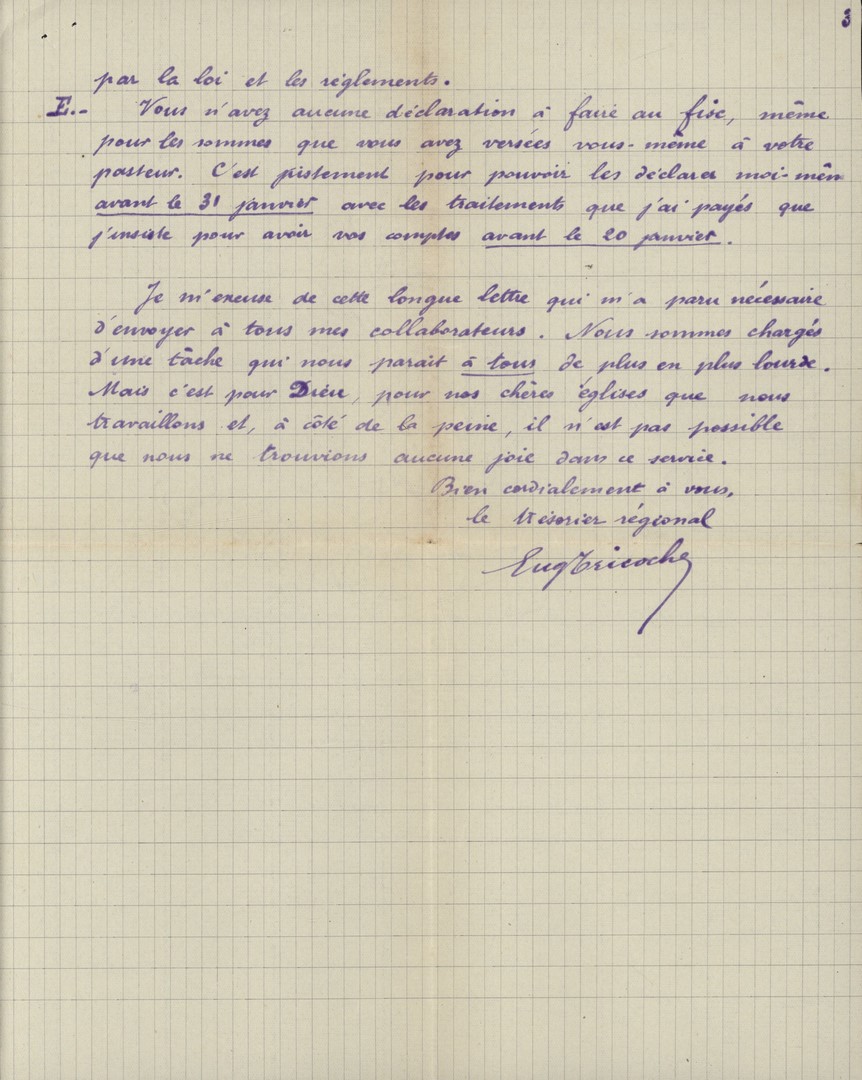 3
par la loi et les réglements.
E.- Vous n'avez aucune déclaration à faire au fisc, même
pour les sommes que vous avez versées vous-même à votre
pasteur. C'est justement pour pouvoir les déclarer moi-mêm
avant le 31 janvier avec les traitements que j'ai payés que
j'insiste pour avoir vos comptes avant le 20 janvier.
Je m'excuse de cette longue lettre qui m'a paru nécessaire
d'envoyer à tous mes collaborateurs. Nous sommes chargés
d'une tâche qui nous parait à tous de plus en plus lourde.
Mais c'est pour Dieu, pour nos chères églises que nous
travaillons et, à côté de la peine, il n'est pas possible
que nous ne trouvions aucune joie dans ce service.
Bien cordialement à vous,
le trésorier régional
Eug Tricoche